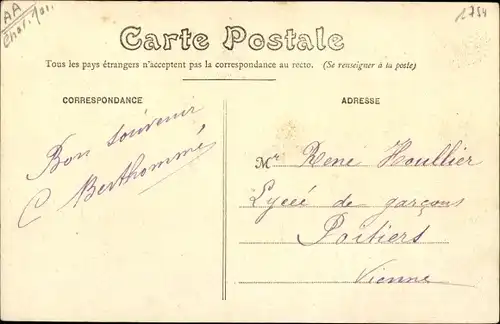 AA
Carte Postale
Tous les pays étrangers n'acceptent pas la correspondance au recto. (Se renseigner à la poste)
CORRESPONDANCE
Bon souvenir
C Berthommé
ADRESSE
Mr Rene Houllier
Lycée de garçons
Poitiers
Vienne